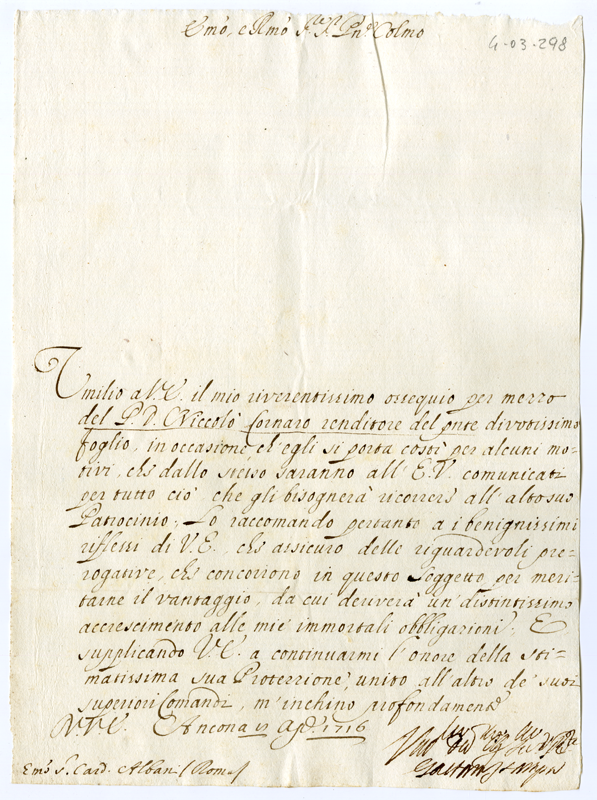 Emo, e Rmo Sre, Pne Colmo
4-03-298
Umilio a V.E. il mio riverentissimo ossequio per mezzo
del P. D. Niccolò Fornaro renditore del pnte divotissimo
foglio, in occasione, ch'egli si porta costì per alcuni mo-
tivi, che dallo stesso saranno all'E.V. comunicati
per tutto ciò che gli bisognerà ricorrere all'alto suo
Patrocinio; Lo raccomando pertanto a i benignissimi
riflessi di V.E., che assicuro delle riguardevoli pre-
rogative, che concorrono in questo Soggetto per meri-
tarne il vantaggio, da cui deriverà un distintissimo
accrescimento alle mie immortali obbligazioni; E
supplicando V.E. a continuarmi l'onore della sti-
matissima sua Protezzione, unito all'altro de' suoi
superiori Comandi, m'inchino profondamente
D.V.E. Ancona 17 Ago. 1716
Emo S. Card. Albani (Roma)